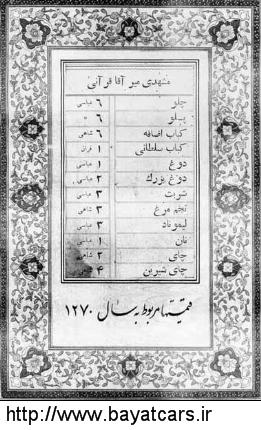 مشهدی میر آقا قرآنی
چلو ۶ عباسی
پلو ۶ "
کباب اضافه ۶ شاهی
کباب سلطانی ۱ قران
دوغ ۱ عباسی
دوغ بزرك ۲ عباسی
شربت ۳ عباسی
تخم مرغ ۳ شاهی
لیموناد ۳ عباسی
نان ۱ عباسی
چای ۲ شاهی
چای شیرین ۴
قیمتها مربوط به سال ۱۲۷۰
http://www.bayatcars.ir